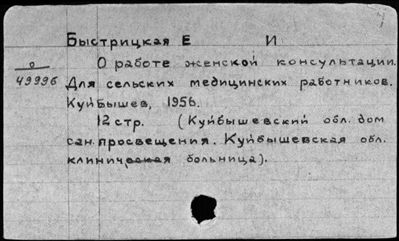 Быстрицкая Е И
О работе женской консультации.
Для сельских медицинских работников.
Куйбышев, 1956.
12 стр. (Куйбышевский обл. дом
сан. просвещения. Куйбышевская обл.
клиническая больница).
0
49996